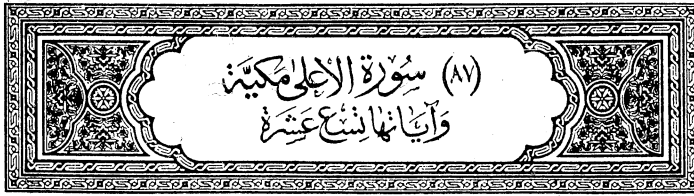 (٨٧) سُورَة الأعلىٰ مَكيَّة
وَآيَاتهَا تِسْع عَشِرَة